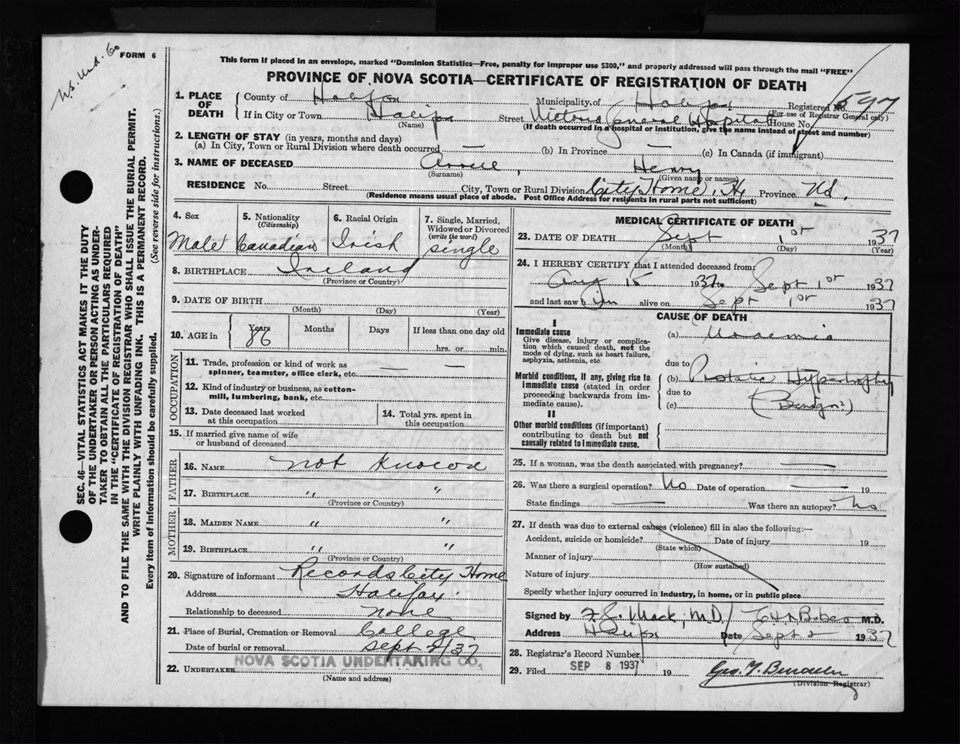 N.S. Und. Co
FORM 6
This form if placed in an envelope, marked "Dominion Statistics—Free, penalty for improper use $300," and properly addressed will pass through the mail "FREE"
PROVINCE OF NOVA SCOTIA—CERTIFICATE OF REGISTRATION OF DEATH
SEC. 46—VITAL STATISTICS ACT MAKES IT THE DUTY
OF THE UNDERTAKER OR PERSON ACTING AS UNDER-
TAKER TO OBTAIN ALL THE PARTICULARS REQUIRED
IN THE "CERTIFICATE OF REGISTRATION OF DEATH"
AND TO FILE THE SAME WITH THE DIVISION REGISTRAR WHO SHALL ISSUE THE BURIAL PERMIT.
WRITE PLAINLY WITH UNFADING INK. THIS IS A PERMANENT RECORD.
Every item of information should be carefully supplied. (See reverse side for instructions.)
1. PLACE OF DEATH County of Halifax Municipality of Halifax Registered No. 597
(For use of Registrar General only)
If in City or Town Halifax Street Victoria General Hospital House No.
(Name) (If death occurred in a hospital or institution, give the name instead of street and number)
2. LENGTH OF STAY (in years, months and days)
(a) In City, Town or Rural Division where death occurred — (b) In Province — (c) In Canada (if immigrant)
3. NAME OF DECEASED , Henry
(Surname) (Given name or names)
RESIDENCE No. Street City, Town or Rural Division City Home, Province
(Residence means usual place of abode. Post Office Address for residents in rural parts not sufficient)
4. Sex 5. Nationality (Citizenship) 6. Racial Origin 7. Single, Married, Widowed or Divorced (write the word)
Male Canadian Irish Single
8. BIRTHPLACE Ireland
(Province or Country)
9. DATE OF BIRTH
(Month) (Day) (Year)
10. AGE in Years Months Days If less than one day old
86 hrs. or min.
OCCUPATION
11. Trade, profession or kind of work as spinner, teamster, office clerk, etc. — —
12. Kind of industry or business, as cotton-mill, lumbering, bank, etc.
13. Date deceased last worked at this occupation 14. Total yrs. spent in this occupation
15. If married give name of wife or husband of deceased
FATHER
16. NAME not known
17. BIRTHPLACE " "
(Province or Country)
MOTHER
18. MAIDEN NAME " "
19. BIRTHPLACE " "
(Province or Country)
20. Signature of informant Records City Home
Address Halifax
Relationship to deceased none
21. Place of Burial, Cremation or Removal College
Date of burial or removal Sept 2/37
22. UNDERTAKER NOVA SCOTIA UNDERTAKING CO.
(Name and address)
MEDICAL CERTIFICATE OF DEATH
23. DATE OF DEATH Sept 1st 1937
(Month) (Day) (Year)
24. I HEREBY CERTIFY that I attended deceased from:
Aug 15 1937 to Sept 1st 1937
and last saw him alive on Sept 1st 1937
CAUSE OF DEATH
I
Immediate cause (a) Uraemia
Give disease, injury or complication which caused death, not the mode of dying, such as heart failure, asphyxia, asthenia, etc.
due to
Morbid conditions, if any, giving rise to immediate cause (stated in order proceeding backwards from immediate cause). (b) Prostatic Hypertrophy
due to
(c) (Benign)
II
Other morbid conditions (if important) contributing to death but not causally related to immediate cause.
25. If a woman, was the death associated with pregnancy? —
26. Was there a surgical operation? No Date of operation — 19
State findings Was there an autopsy? No
27. If death was due to external causes (violence) fill in also the following:—
Accident, suicide or homicide? Date of injury 19
(State which)
Manner of injury
(How sustained)
Nature of injury
Specify whether injury occurred in industry, in home, or in public place
Signed by Mack, M.D./ M.D.
Address Halifax Date Sept 2 1937
28. Registrar's Record Number
29. Filed SEP 8 1937 19 Geo. T.
(Division Registrar)